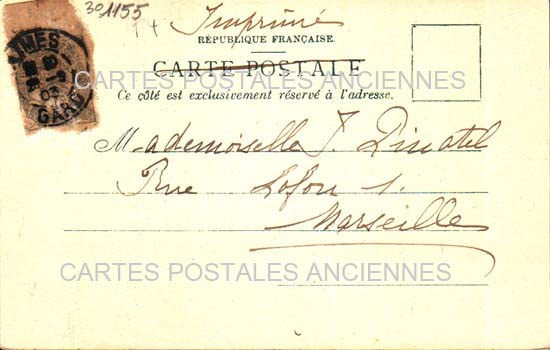 30 1155
Imprimé
RÉPUBLIQUE FRANÇAISE.
CARTE POSTALE
Ce côté est exclusivement réservé à l'adresse.
NIMES
GARD
CARTES POSTALES ANCIENNES
Mademoiselle J. Pinatel
Rue Lafon 1.
Marseille
CARTES POSTALES ANCIENNES